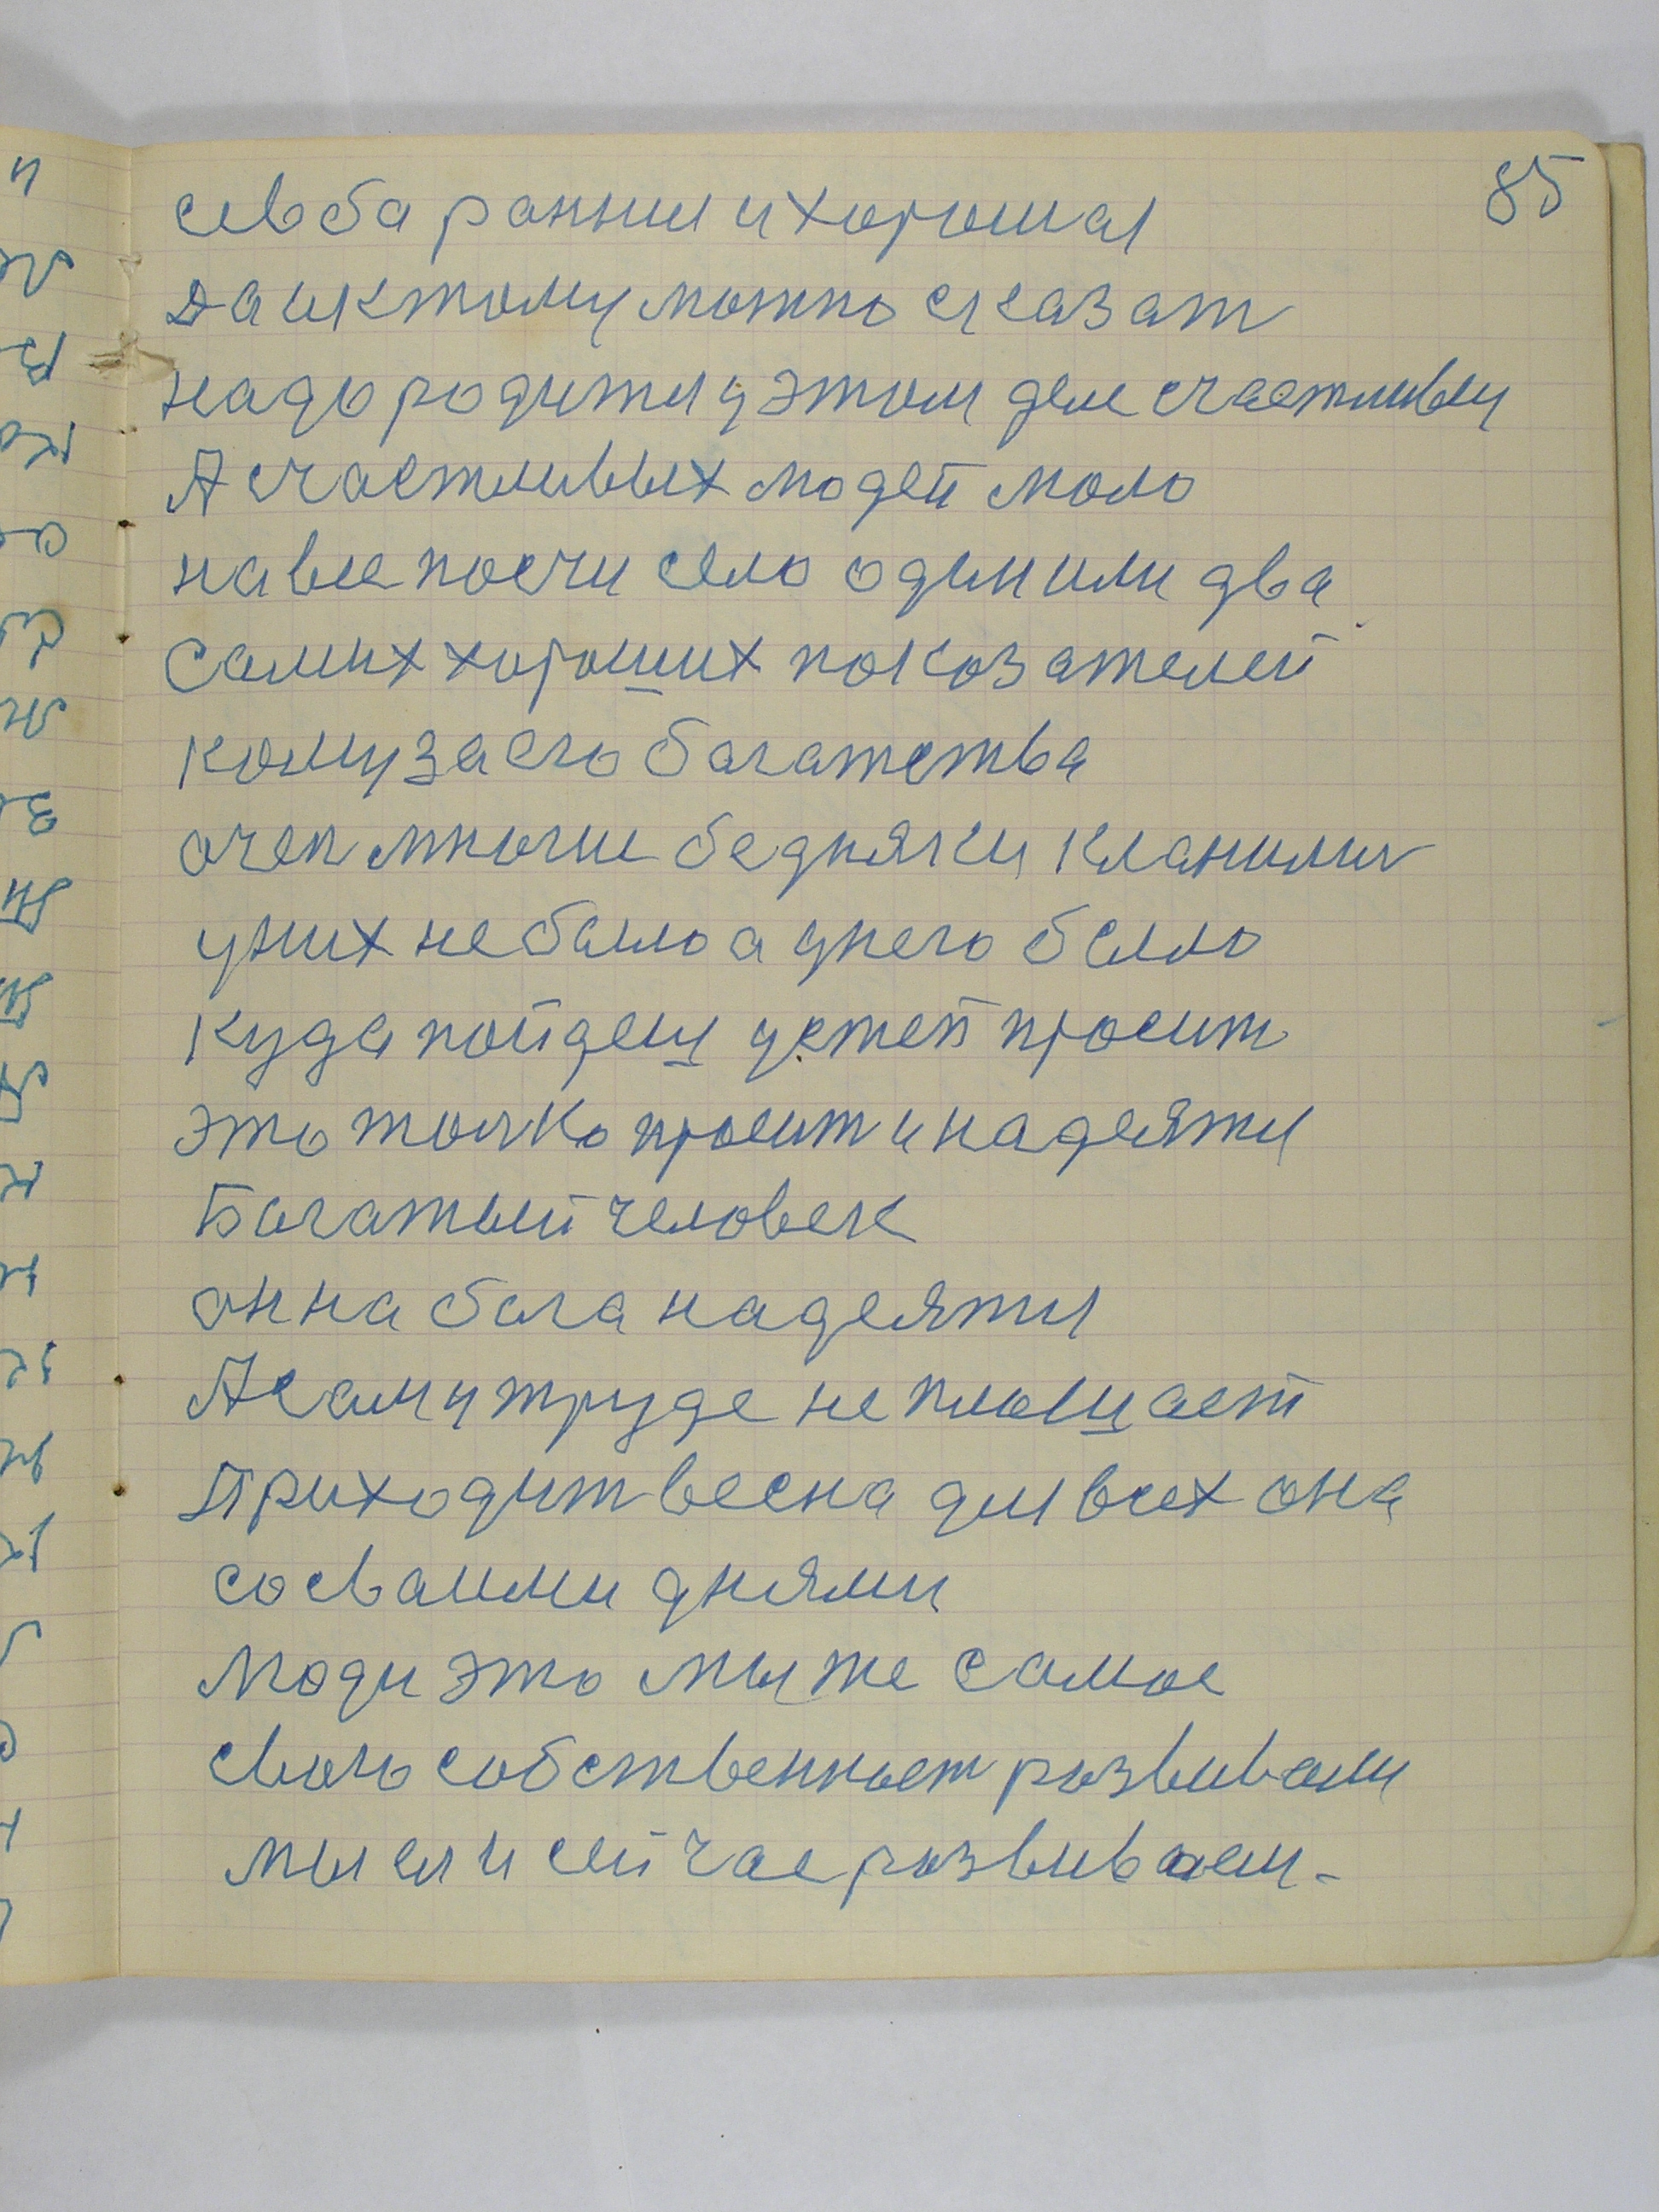 85
севба ранния и хорошая
да и ктому можно сказат
надо родится у этом деле счастливем
А счастливых людей моло
на все поечи село один или два
самих хороших показателей
кому за его багатства
очен многие бедняки кланились
у них не было а у него было
куда пойдеш у детей просит
это толко просит и надеятся
Багатый человек
он на бога надеятся
А сам у труде не плошает
Приходит весна для всех она
со сваими днями
Люди это мы же самое
свою собственност развивали
мы ея и сейчас развиваем.